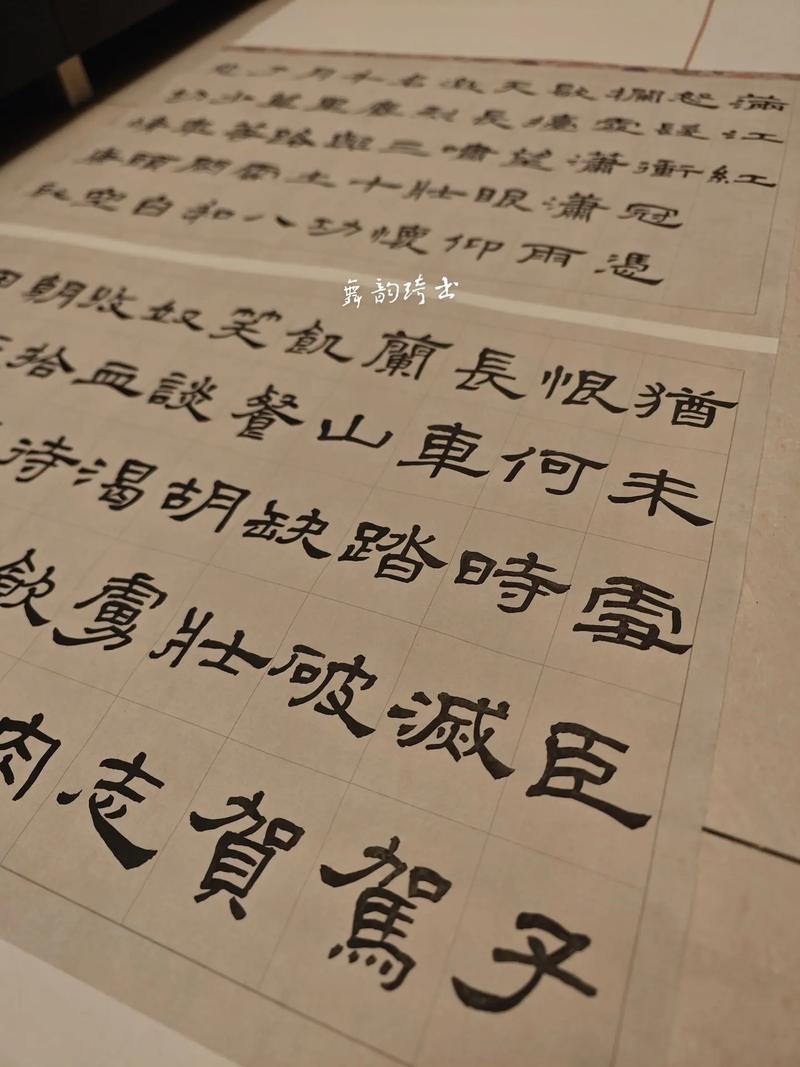 滿江紅
怒髮衝冠憑
欄處瀟瀟雨
歇擡望眼仰
天長嘯壯懷
激烈三十功
名塵與土八
千里路雲和
月莫等閒白
了少年頭空
猶未雪臣子
恨何時滅駕
長車踏破賀
蘭山缺壯志
飢餐胡虜肉
笑談渴飲
奴血待
收拾
朝
舞韵琦书